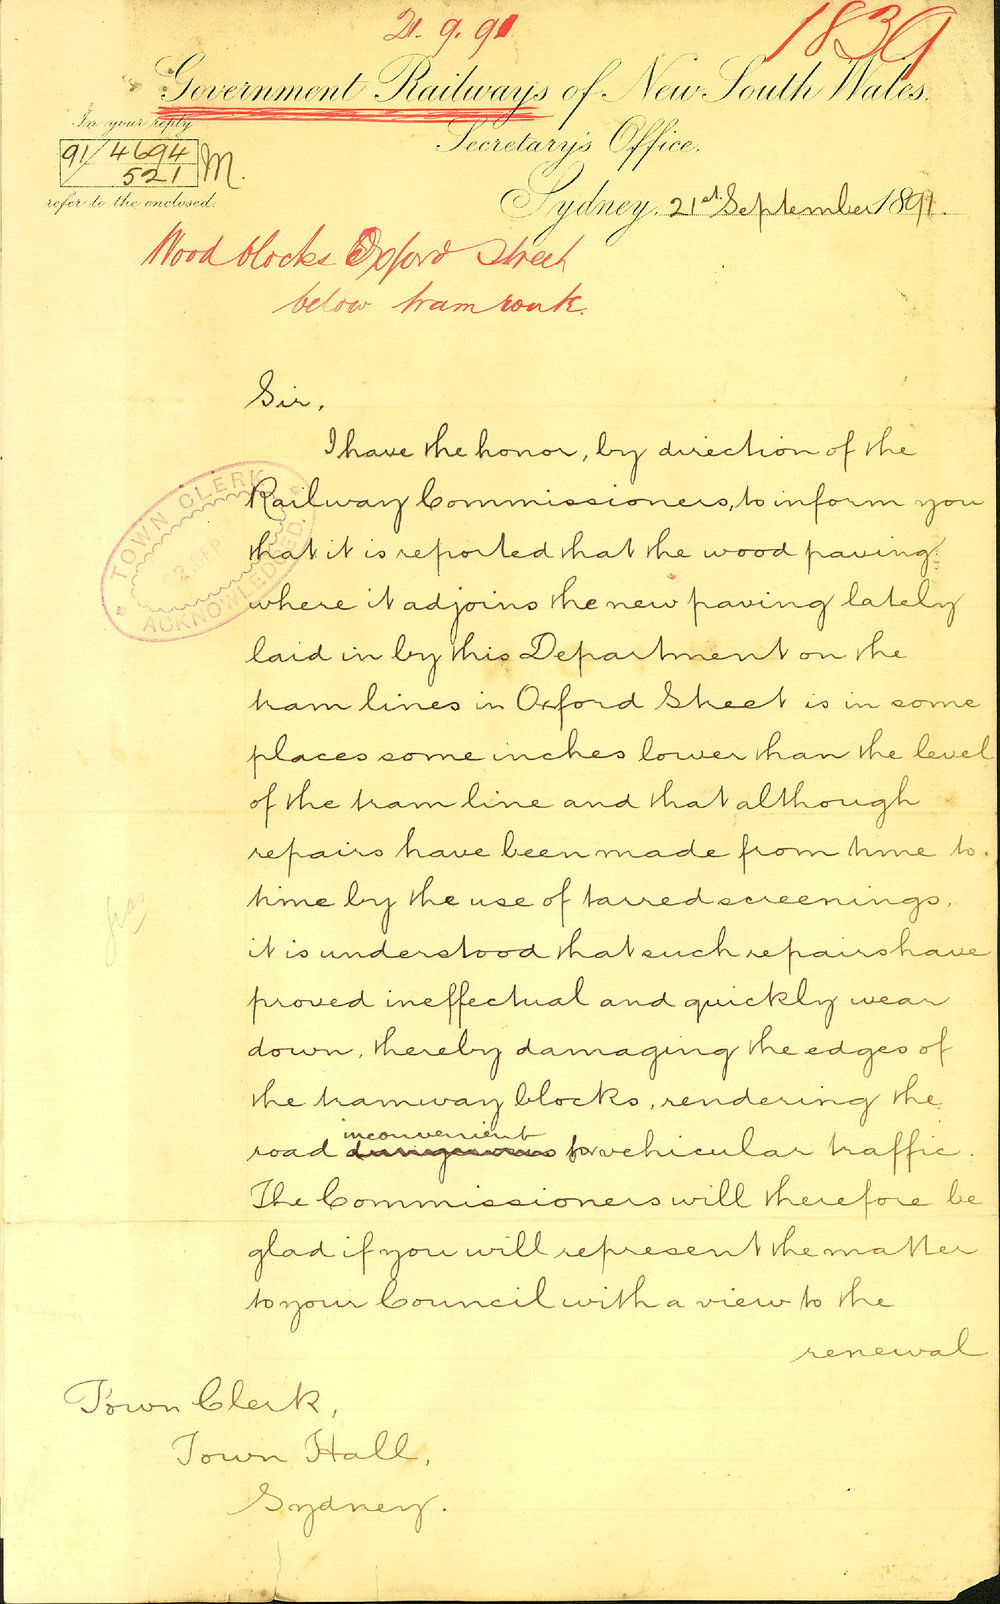 21.9.91
1839
Government Railways of New South Wales.
In your reply
91/4694
521 M.
refer to the enclosed.
Secretary's Office.
Sydney, 21st September 1891.
Wood blocks Oxford Street
below tram rank.
Sir,
I have the honor, by direction of the
Railway Commissioners, to inform you
that it is reported that the wood paving
where it adjoins the new paving lately
laid in by this Department on the
tram lines in Oxford Street is in some
places some inches lower than the level
of the tram line and that although
repairs have been made from time to
time by the use of tarred screenings,
it is understood that such repairs have
proved ineffectual and quickly wear
down, thereby damaging the edges of
the tramway blocks, rendering the
inconvenient
road dangerous for vehicular traffic.
The Commissioners will therefore be
glad if you will represent the matter
to your Council with a view to the
renewal
Town Clerk,
Town Hall,
Sydney.
TOWN CLERK
SEP
ACKNOWLEDGED.